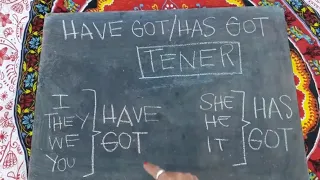 HAVE GOT/HAS GOT
TENER
I
THEY
WE
YOU
HAVE
GOT
SHE
HE
IT
HAS
GOT